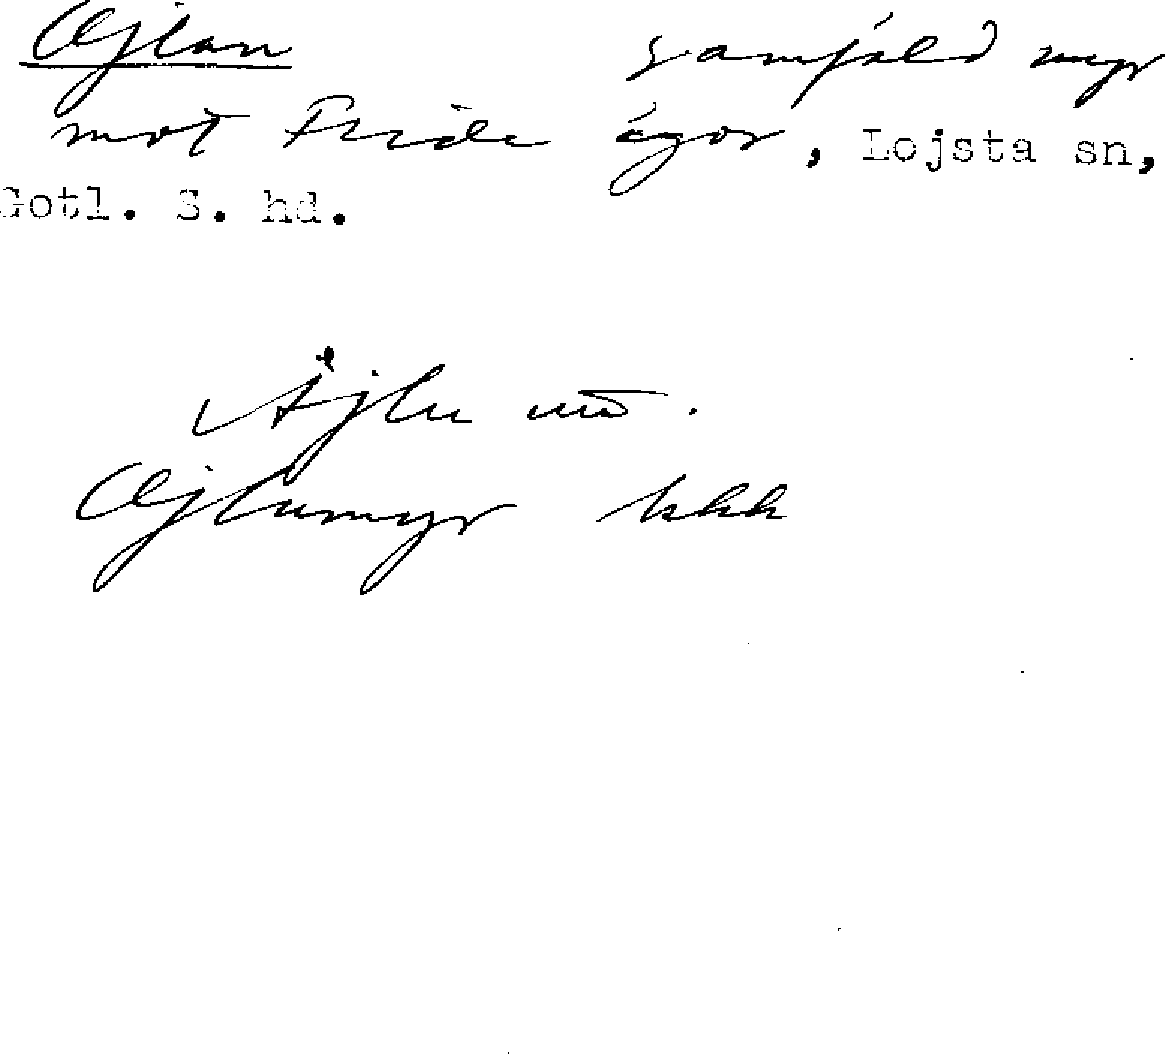 Ajlan samfäld myr
mot Fride ägor, Lojsta sn,
Gotl. S. hd.
Äjlu uå.
Ajlumyr kkk